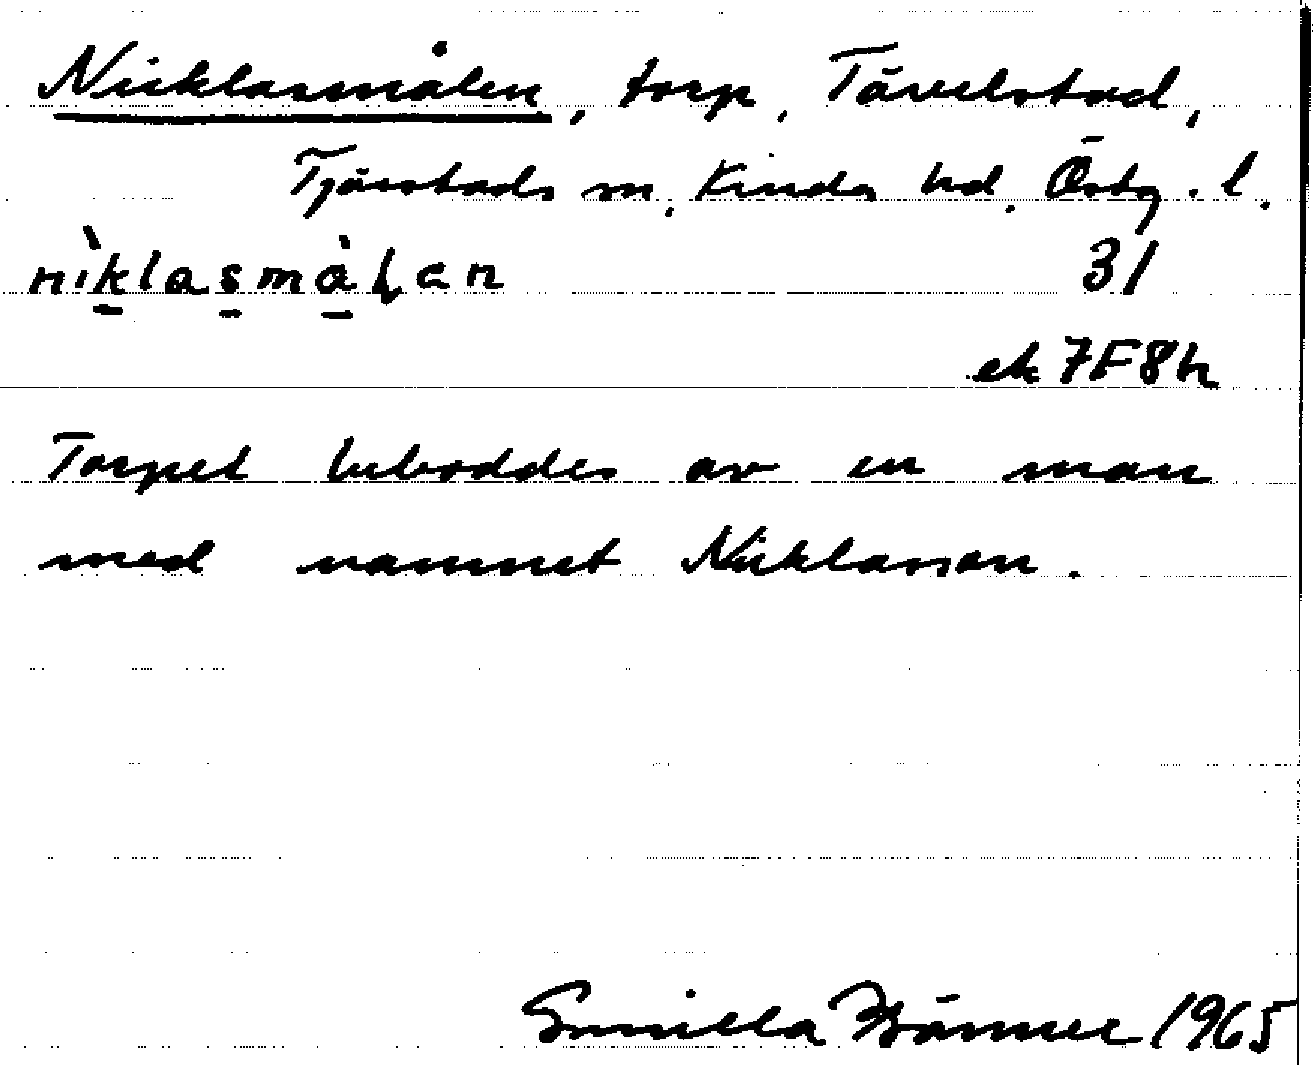 Nicklasmålen, torp, Tävelstad,
Tjärstads sn, Kinda hd, Östg. l.
nìklasmàlen 31
ek 7F8h
Torpet beboddes av en man
med namnet Nicklasson.
Gunilla Bränner 1965